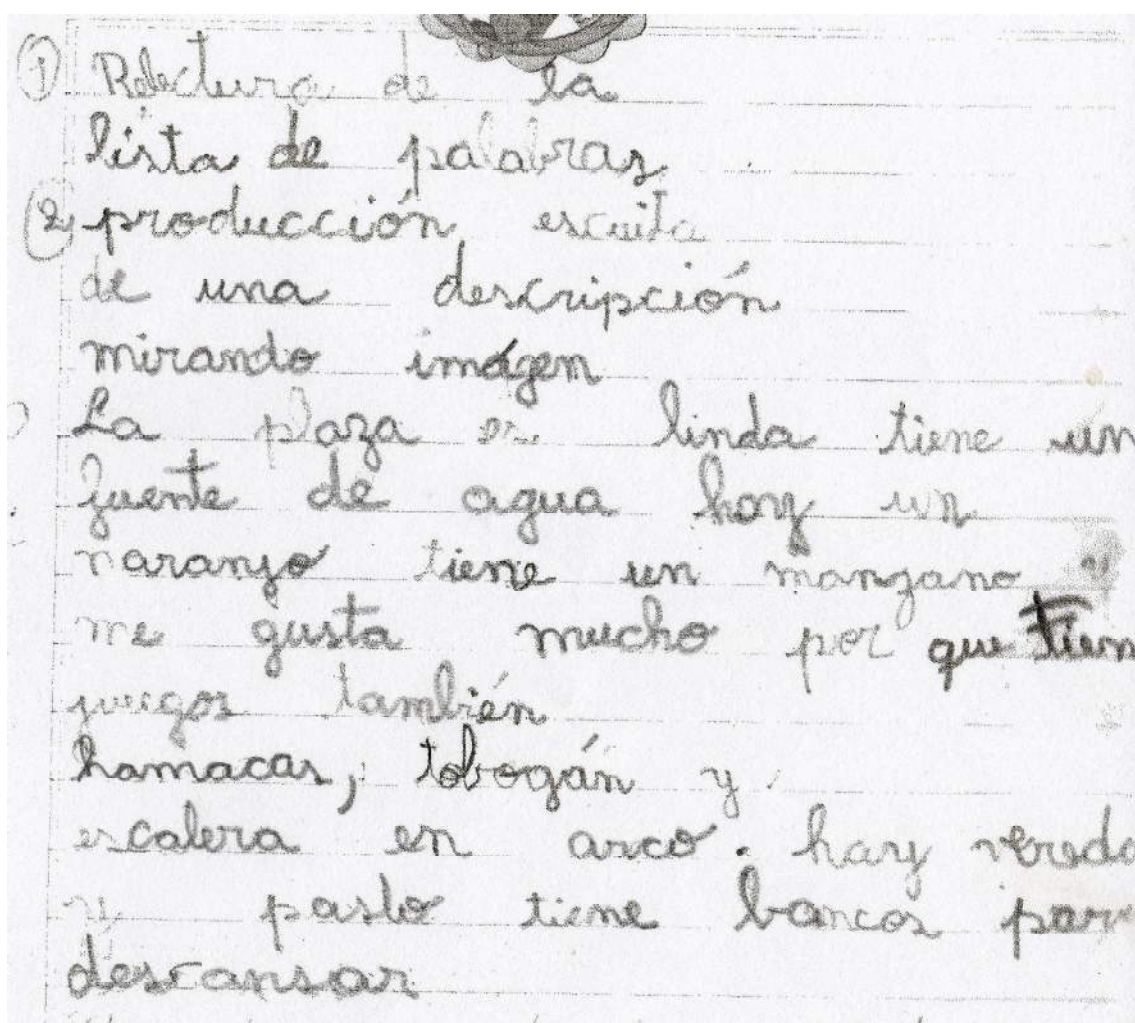 ① Relectura de la
lista de palabras.
② producción escrita
de una descripción
mirando imágen
La plaza es linda tiene un
fuente de agua hay un
naranjo tiene un manzano y
me gusta mucho por que tien
juegos también
hamacas, tobogán y
escalera en arco. hay vereda
y pasto tiene bancos para
descansar